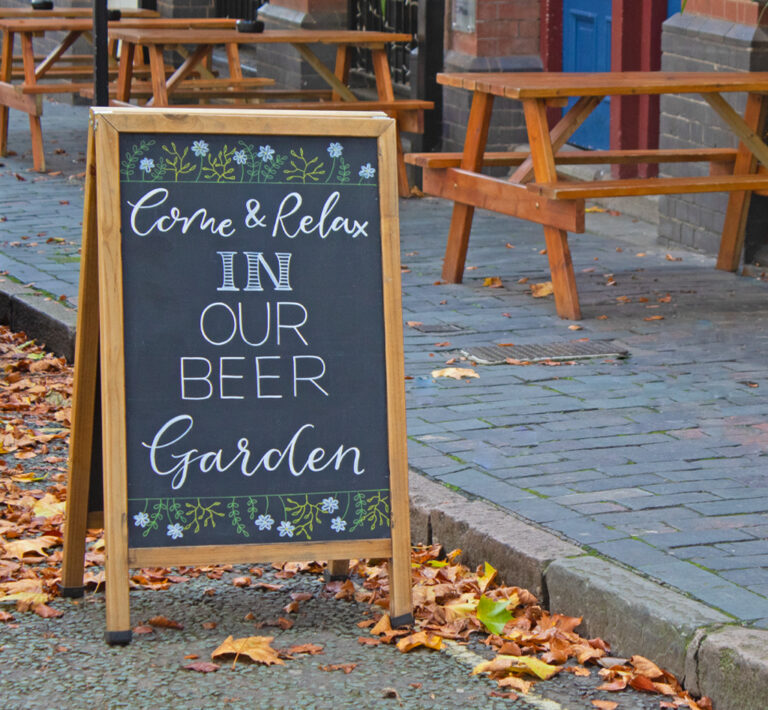 Come & Relax
IN
OUR
BEER
Garden